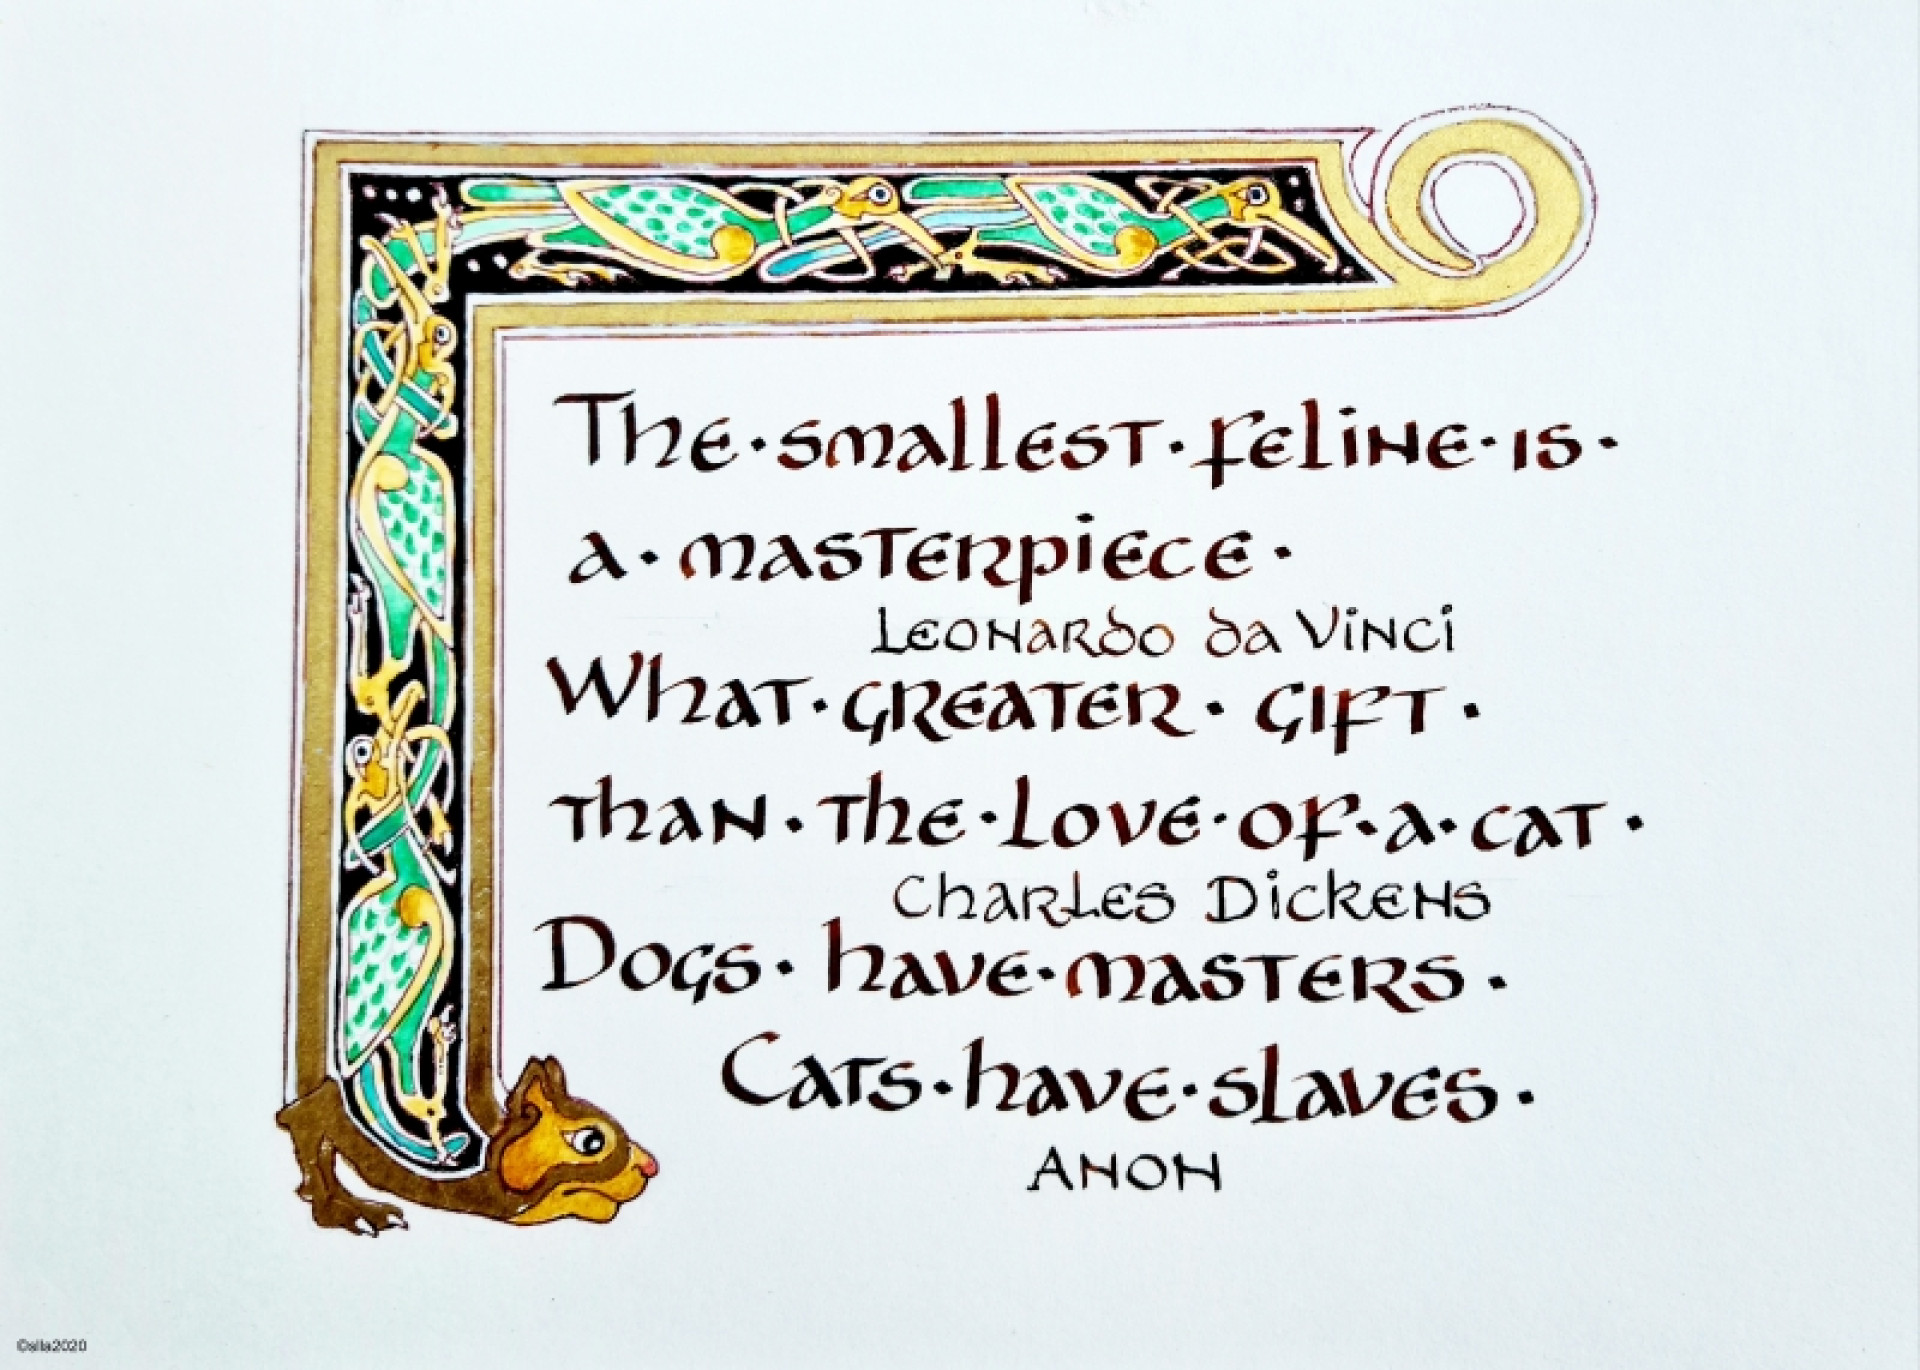 The·smallest·feline·is·
a·masterpiece·
Leonardo da Vinci
What·greater·gift·
than·the·love·of·a·cat·
Charles Dickens
Dogs·have·masters·
Cats·have·slaves·
Anon
©sila2020